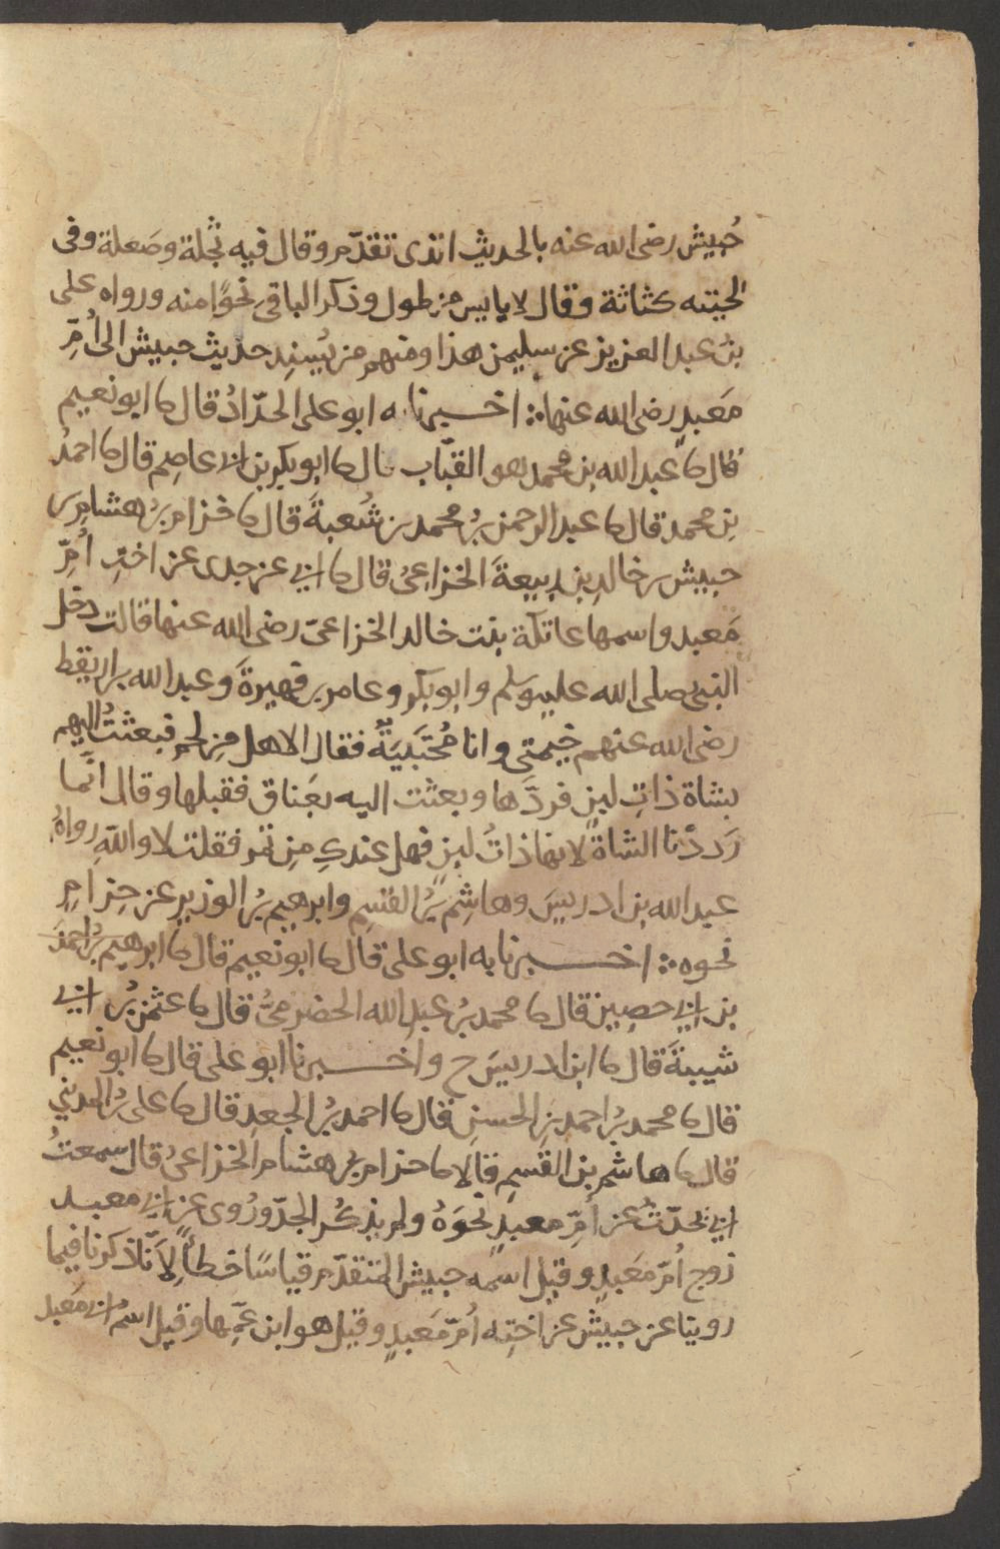 حُبيش رضى الله عنه بالحديث الذى تقدّم وقال فيه ثُجلة وصَعلة وفى
لحيته كثاثة وقال لا يايس من طول وذكر الباقى نحوًا منه ورواه على
بنُ عبد العزيز عن سليمن هذا ومنهم من يُسنِد حديث حبيش الى اُمِّ
مَعبدٍ رضى الله عنها ؞ اخـــبرنا به ابو على الحدّادُ قال نا ابو نعيم
قال نا عبد الله بن محمد هو القبّاب قال نا ابو بكر بن ابى عاصم قال نا احمدُ
بن محمد قال نا عبد الرحمن بنُ محمد بن شُعبةَ قال نا حزام بنُ هشام بن
حبيش بن خالد بن ربيعةَ الخزاعىُّ قال نا ابى عن جدى عن اختِهِ اُمِّ
مَعبد واسمها عاتكة بنت خالد الخزاعىّ رضى الله عنها قالت دخل
النبى صلى الله عليه وسلم وابو بكر وعامر بن فهيرةَ وعبد الله بن اريقط
رضى الله عنهم خيمتى وانا مُحتَبيَةٌ فقال الا هل مِن لحمٍ فبعثتُ اليهم
بشاة ذاتِ لبنٍ فردَّها وبعثت اليه بعَناق فقبلها وقال انَّما
رَددْنا الشاةَ لانها ذاتُ لبنٍ فهل عندكِ مِن تمر فقلت لا والله رواهُ
عبد الله بن ادريسَ وهاشِم بنُ القسِم وابرهيم بنُ الوزير عن حِزامٍ
نحوه ؞ اخـــبرنا به ابو على قال نا ابو نعيم قال نا ابرهيم بنُ احمدَ
بن ابى حصِين قال نا محمد بنُ عبدِ الله الحضرمىُّ قال نا عثمن بنُ ابى
شيبةَ قال نا ابن ادريسَ ح واخـــبرنا ابو على قال نا ابو نعيم
قال نا محمد بنُ احمد بنِ الحسنِ قال نا احمد بنُ الجعدِ قال نا على بنُ المدينى
قال نا هاشم بن القسِمِ قالا نا حزام بن هشام الخزاعىُّ قال سمعتُ
ابى يحدّثُ عن اُمِّ معبدٍ نحوَهُ ولم يذكُر الجدّ ورُوى عن ابى معبد
زوج اُمّ مَعبدٍ وقيل اسمه حبيش المتقدّم قياسًا خطأً لِاَنّا ذكرنا فيما
روينا عن حبيش عن اختِه اُمّ مَعبدٍ وقيل هو ابن عمِّها وقيل اسمُ ابى مَعبد